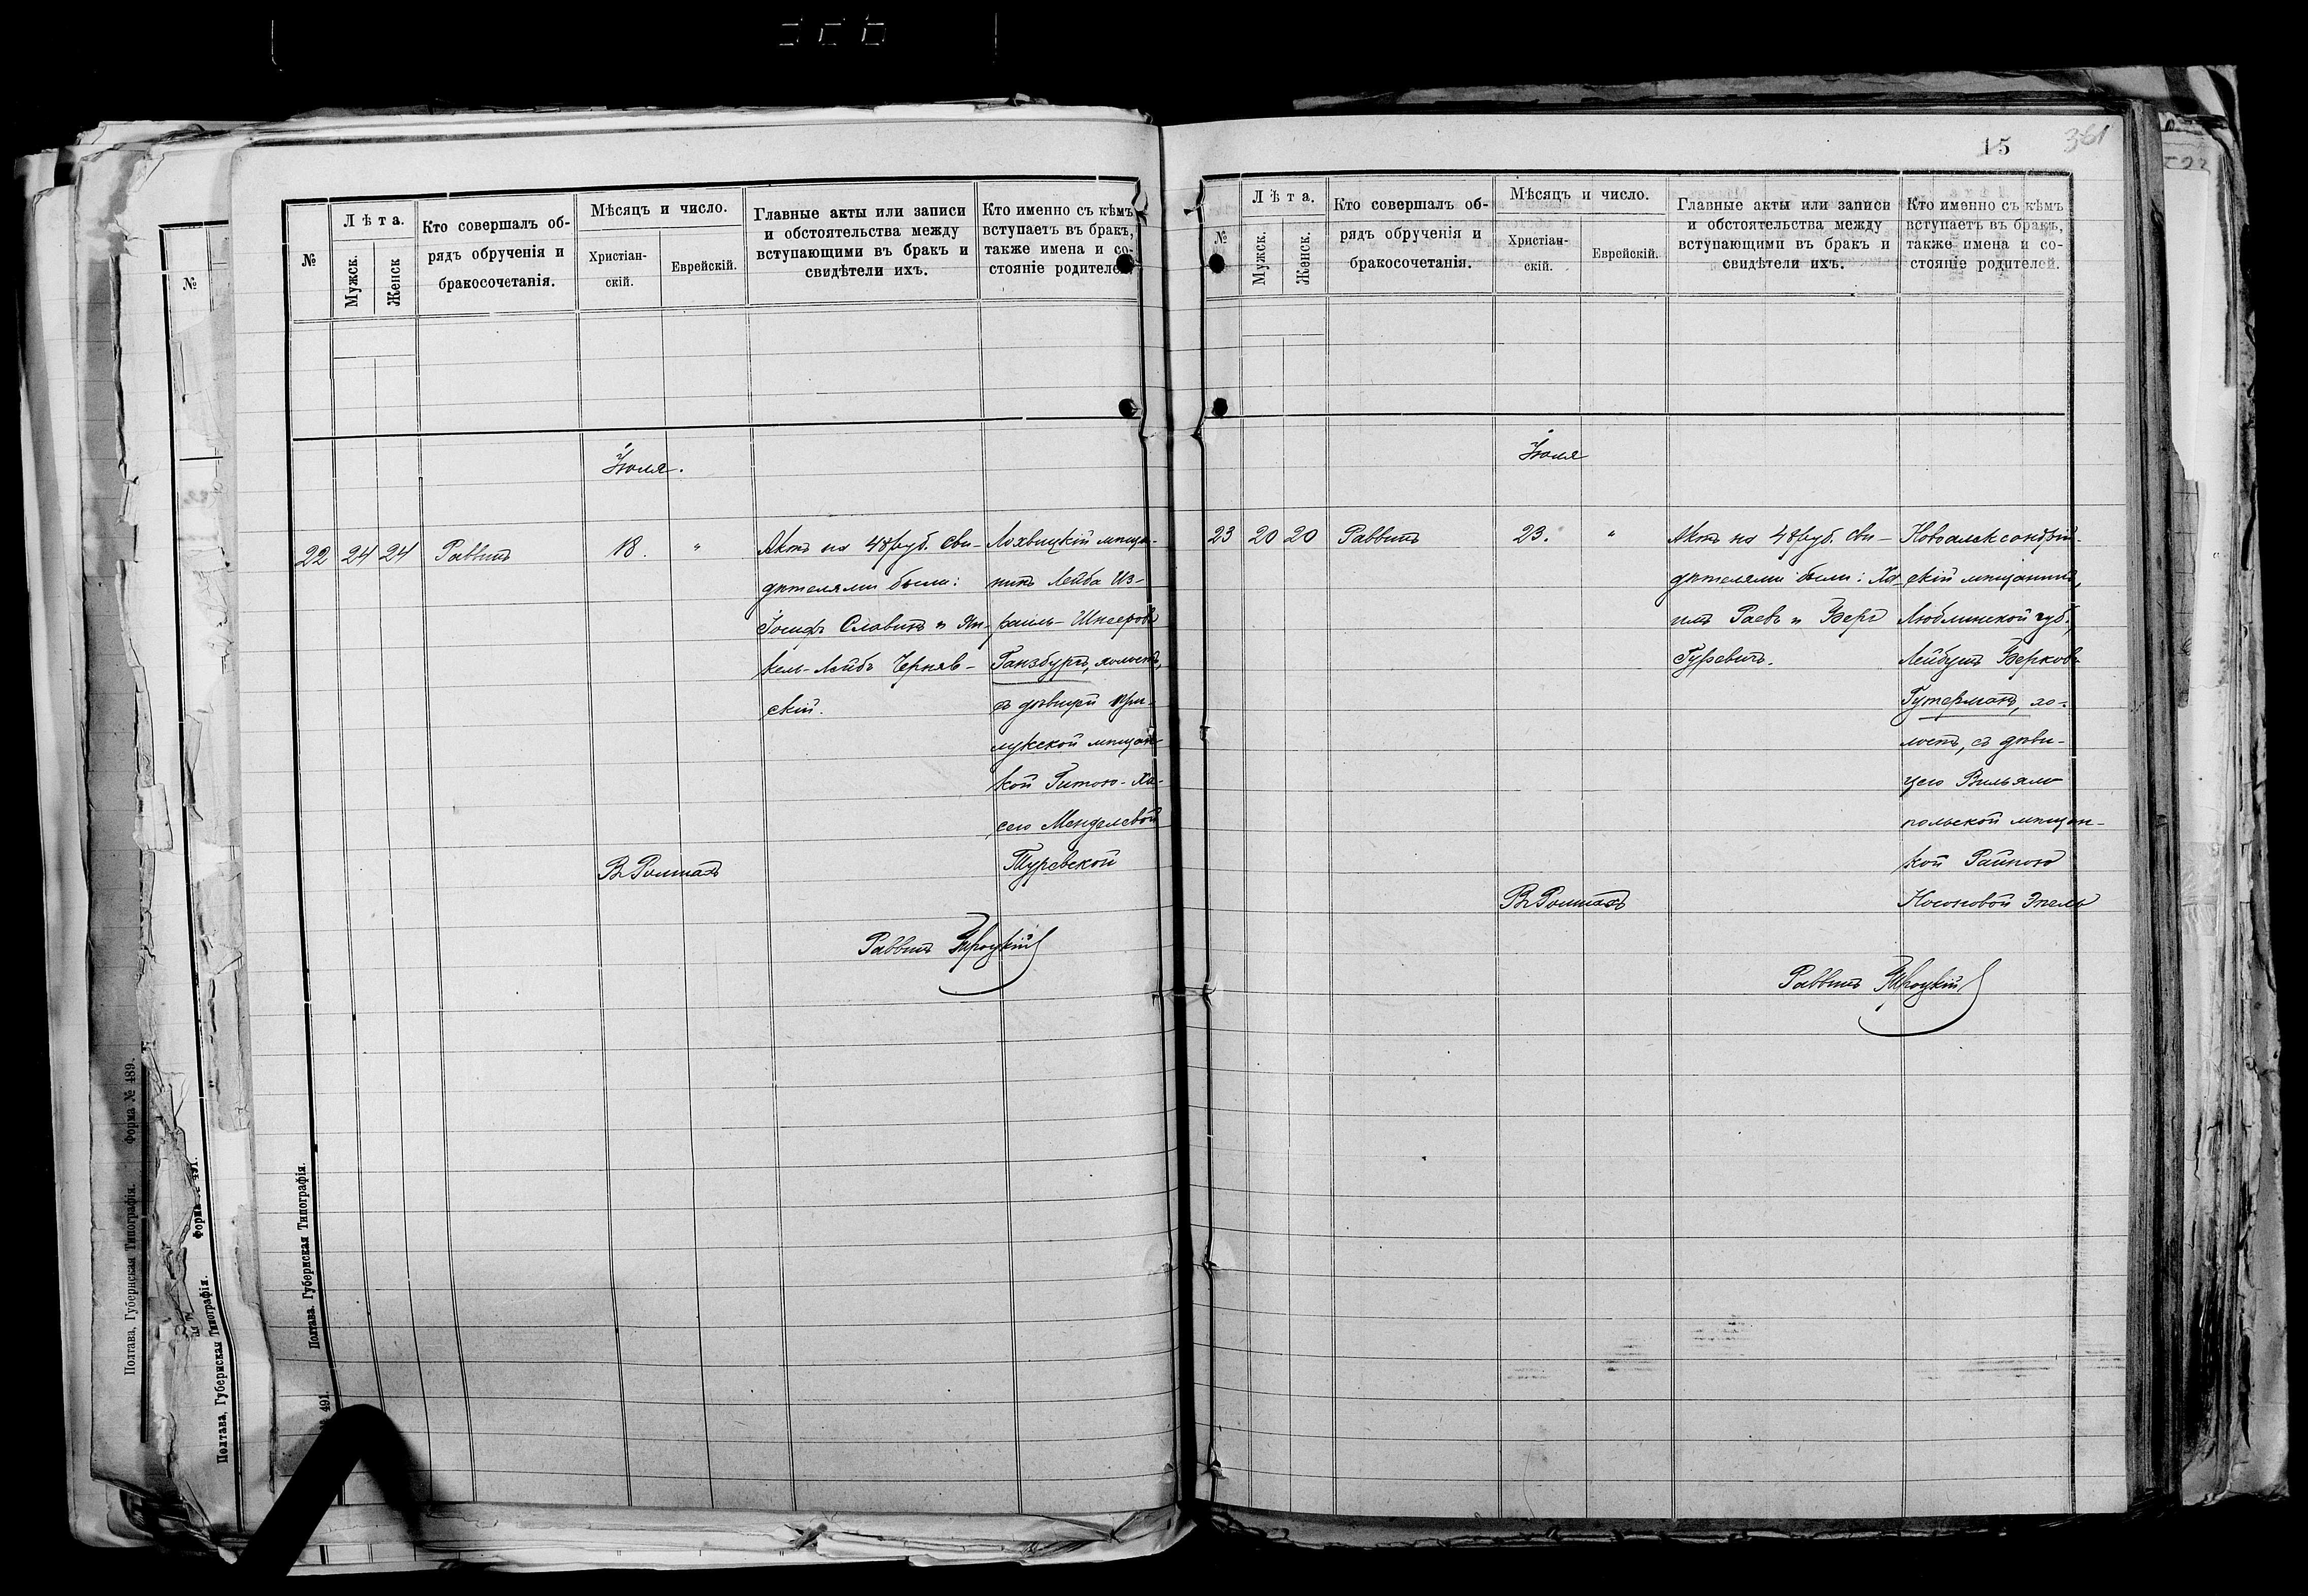 15
361
№
Лѣта.
Мужск.
Женск
Кто совершалъ об-
рядъ обрученія и
бракосочетанія.
Мѣсяцъ и число.
Христіан-
скій.
Еврейскій.
Главные акты или записи
и обстоятельства между
вступающими въ бракъ и
свидѣтели ихъ.
Кто именно съ кѣмъ
вступаетъ въ бракъ,
также имена и со-
стояніе родителей.
Іюля.
22 24 24 Раввинъ 18. "
Актъ на 48 руб. Сви-
дѣтелями были:
Іосифъ Славинъ и Ян-
кель-Лейбъ Черняв-
скій.
Лохвицкій мѣща-
нинъ Лейба Из-
раиль-Шнееровъ
Ганзбургъ, холостъ,
съ дѣвицей При-
лукской мѣщан-
кой Гитою-Ха-
сею Менделевой
Туревской
Въ Ромнахъ
Раввинъ
№
Лѣта.
Мужск.
Женск.
Кто совершалъ об-
рядъ обрученія и
бракосочетанія.
Мѣсяцъ и число.
Христіан-
скій.
Еврейскій.
Главные акты или записи
и обстоятельства между
вступающими въ бракъ и
свидѣтели ихъ.
Кто именно съ кѣмъ
вступаетъ въ бракъ,
также имена и со-
стояніе родителей.
Іюля
23 20 20 Раввинъ 23. "
Актъ на 48 руб. Сви-
дѣтелями были: Ха-
имъ Раевъ и Беръ
Гуревичъ.
Новоалександрій-
скій мѣщанинъ,
Люблинской губ.,
Лейбушъ Берковъ
Гутерманъ, хо-
лостъ, съ дѣви-
цею Вильям-
польской мѣщан-
кой Райною
Носоновой Эпель
Въ Ромнахъ
Раввинъ
№
Полтава, Губернская Типографія. Форма № 489.
Полтава, Губернская Типографія.
491.
Полтава. Губернская Типографія.
491.